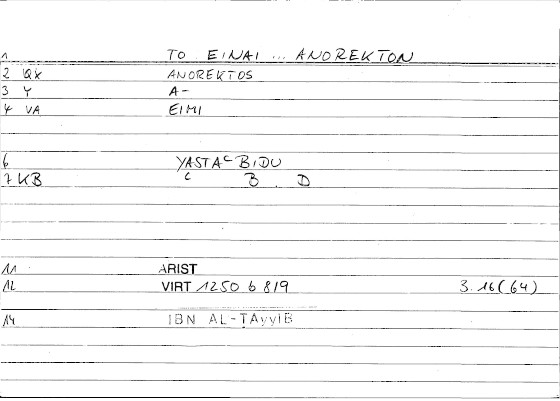 1 TO EINAI ... ANOREKTON
2 QX ANOREKTOS
3 Y A-
4 VA EIMI
6 YASTAᶜBIDU
7 KB ᶜ B D
11 ARIST
12 VIRT 1250 b 8/9 3.16(64)
14 IBN AL-TAyyIB